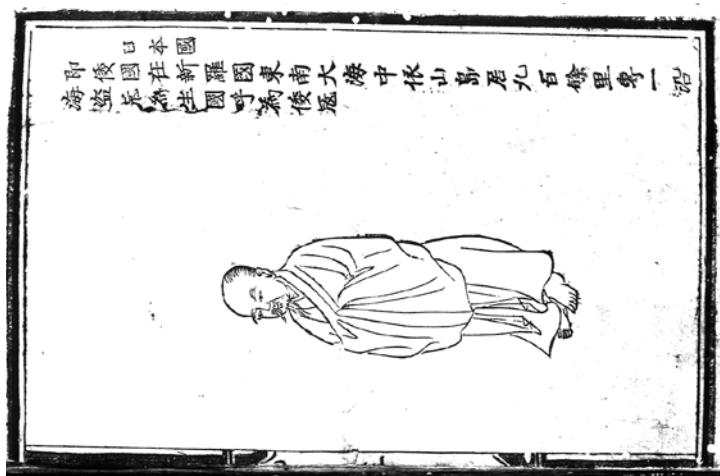 日本國
即倭國在新羅國東南大海中依山島居九百餘里專一沿
海盜為生國呼為倭寇